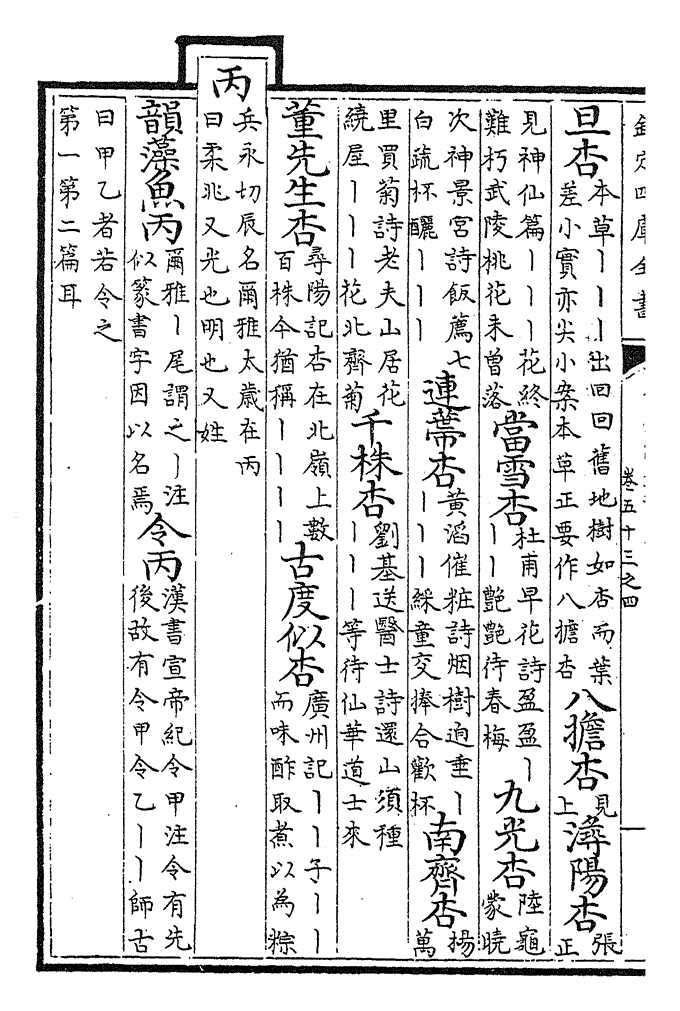 欽定四庫全書
卷五十三之四
旦杏本草丨丨丨出回回舊地樹如杏而葉差小實亦尖小案本草正要作八擔杏八擔杏見上潯陽杏張正
見神仙篇丨丨丨花終難朽武陵桃花未曾落當雪杏杜甫早花詩盈盈丨丨艷艷待春梅九光杏陸龜蒙曉
次神景宮詩飯薦七白蔬杯釃丨丨丨連蔕杏黃滔催粧詩烟樹逈垂丨丨丨丨綵童交捧合歡杯南齊杏楊萬
里買菊詩老夫山居花繞屋丨丨丨花北齊菊千株杏劉基送醫士詩還山須種丨丨丨等待仙華道士來
董先生杏尋陽記杏在北嶺上數百株今猶稱丨丨丨丨古度似杏廣州記丨丨子丨丨而味酢取煮以為粽
丙兵永切辰名爾雅太歲在丙曰柔兆又光也明也又姓
韻藻魚丙爾雅丨尾謂之丨注似篆書字因以名焉令丙漢書宣帝紀令甲注令有先後故有令甲令乙丨丨師古
曰甲乙者若令之第一第二篇耳